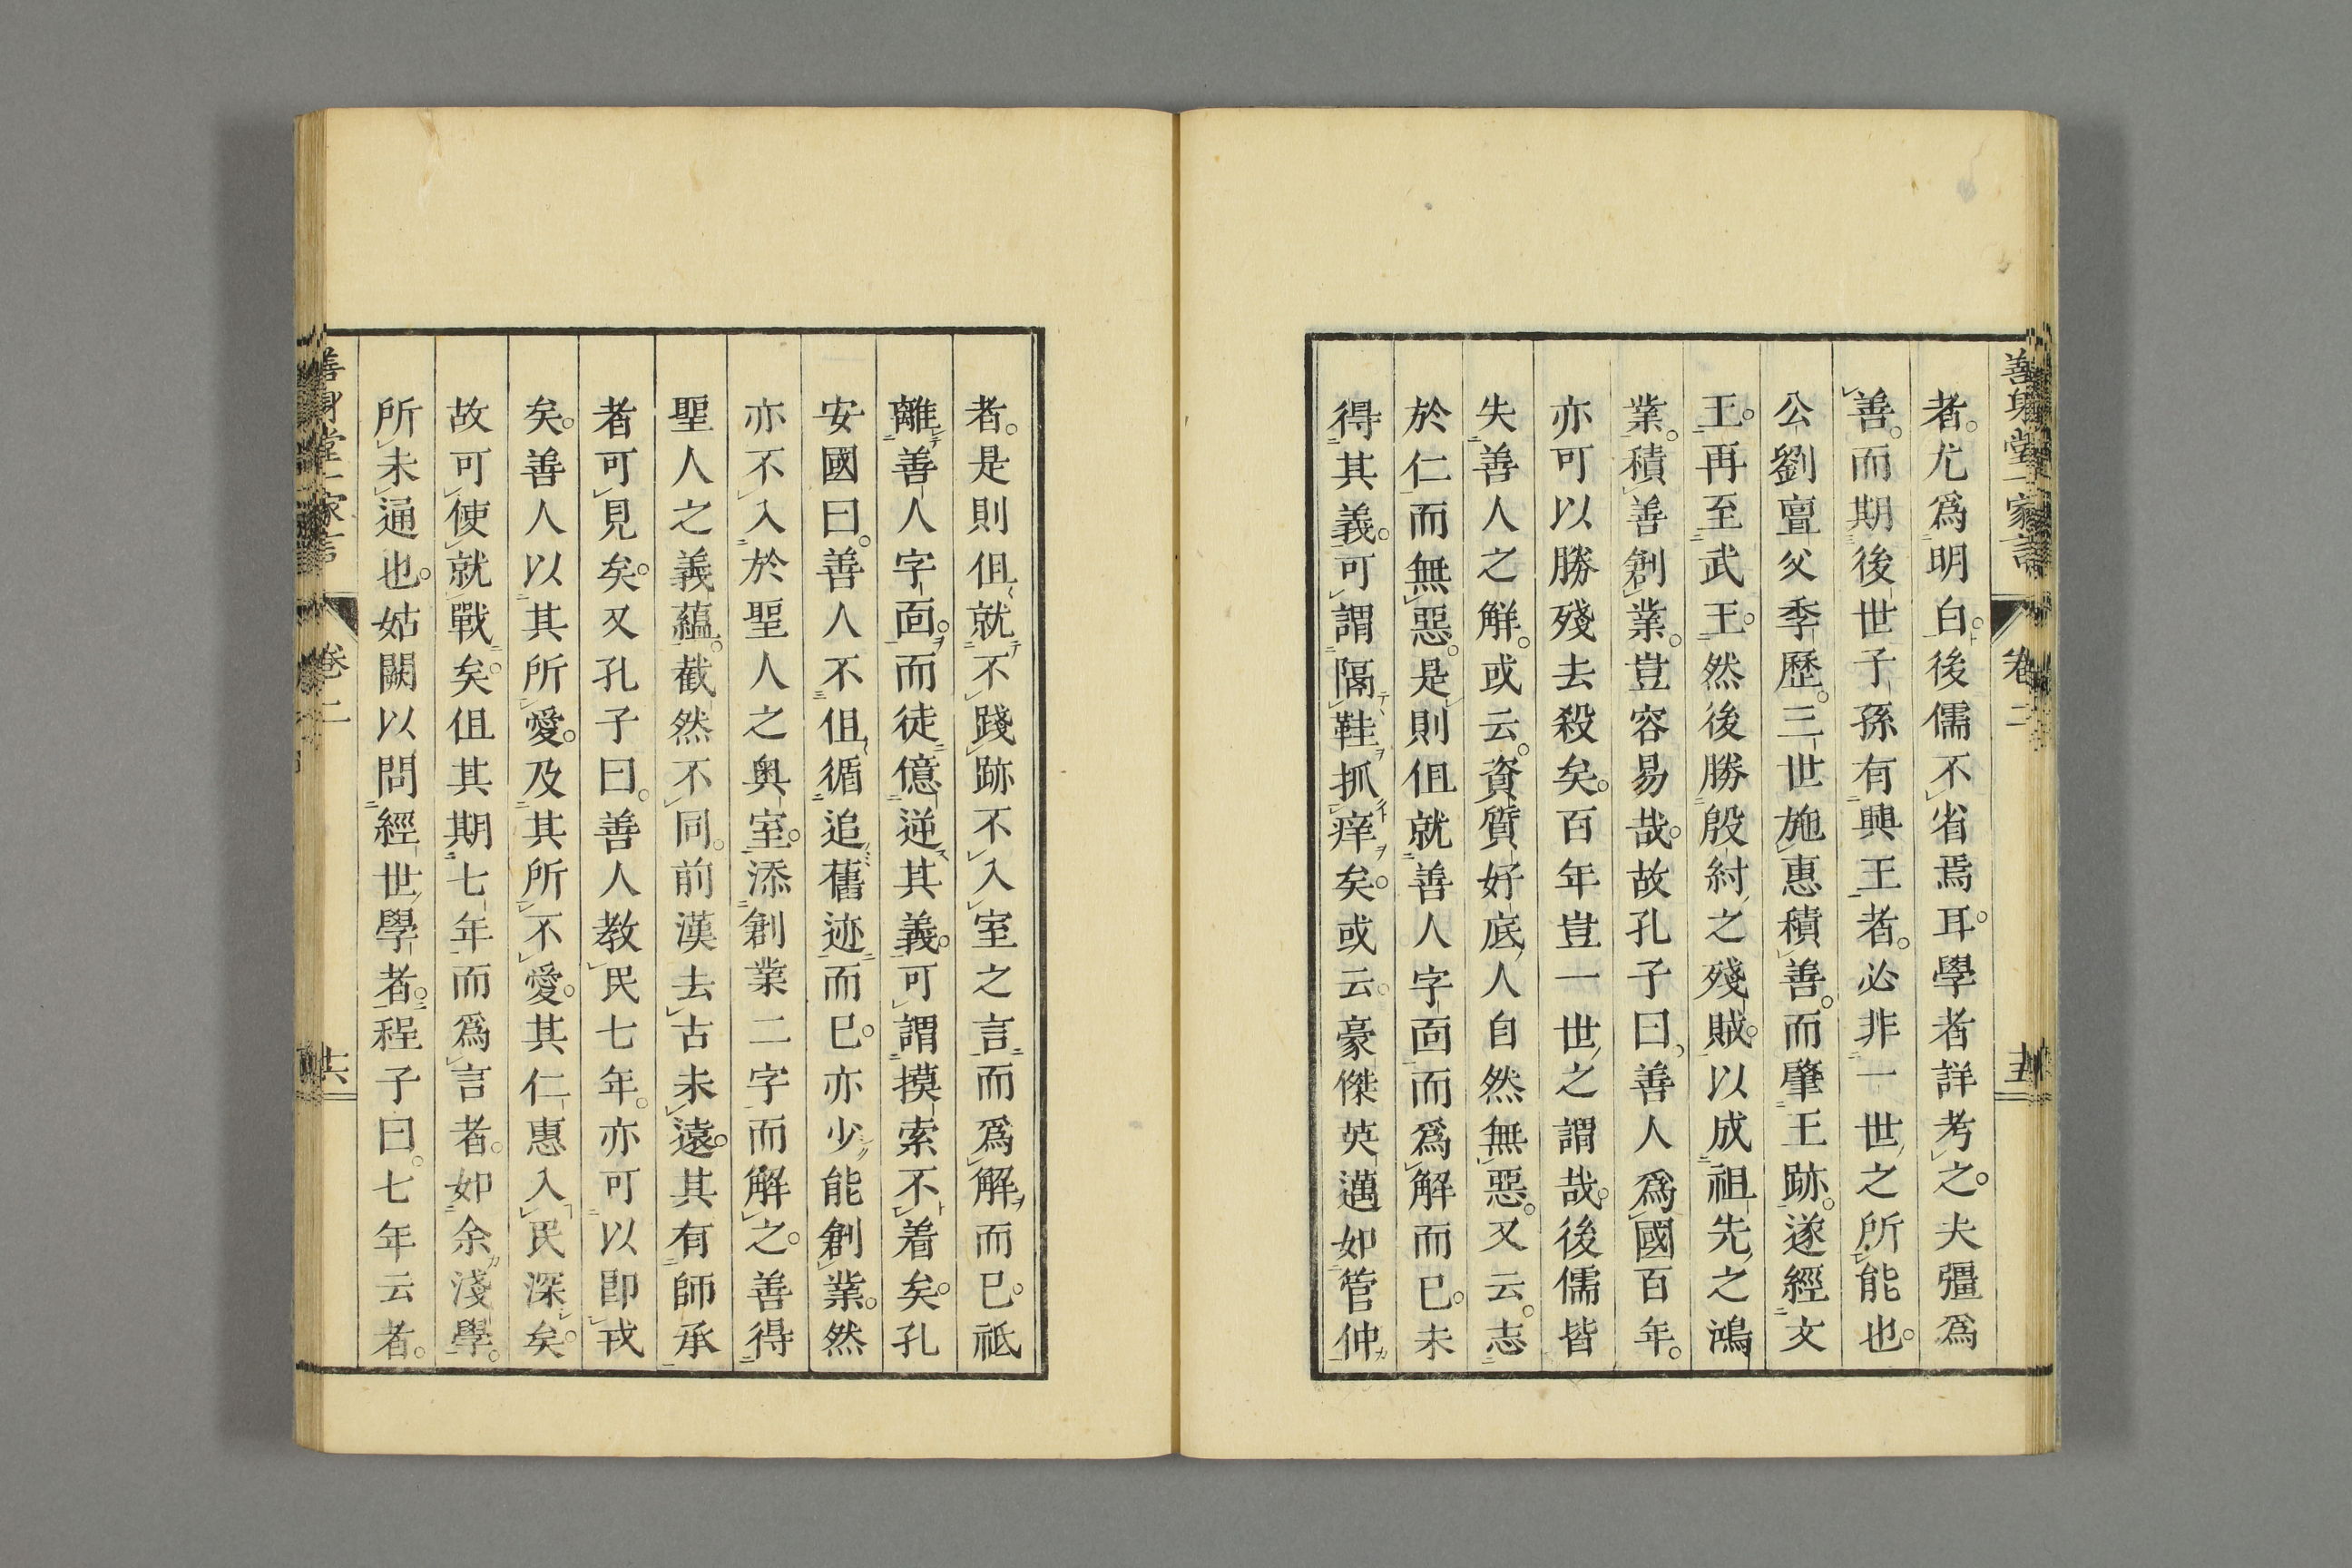 善身堂一家言 卷二
者。尤爲明白。後儒不省焉耳。學者詳考之。夫彊爲
善。而期後世子孫有興王者。必非一世之所能也。
公劉亶父季歷。三世施惠積善。而肇王跡。遂經文
王。再至武王。然後勝殷紂之殘賊。以成祖先之鴻
業。積善創業。豈容易哉。故孔子曰、善人爲國百年。
亦可以勝殘去殺矣。百年豈一世之謂哉。後儒皆
失善人之解。或云。資質好底人自然無惡。又云。志
於仁而無惡。是則但就善人字面而爲解而已。未
得其義。可謂隔鞋抓痒矣。或云。豪傑英邁如管仲
者。是則但就不踐跡不入室之言而爲解而已。祗
離善人字面。而徒億逆其義。可謂摸索不着矣。孔
安國曰。善人不但循追舊迹而已。亦少能創業。然
亦不入於聖人之奥室。添創業二字而解之。善得
聖人之義蘊。截然不同。前漢去古未遠。其有師承
者可見矣。又孔子曰。善人教民七年。亦可以即戎
矣。善人以其所愛。及其所不愛。其仁惠入民深矣。
故可使就戰矣。但其期七年而爲言者。如余淺學。
所未通也。姑闕以問經世學者。程子曰。七年云者。
善身堂一家言 卷二